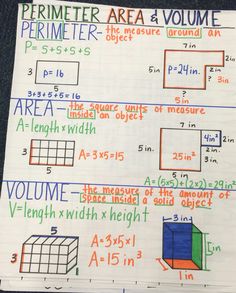 PERIMETER AREA & VOLUME
PERIMETER- the measure around an
object
P= 5+5+5+5
7 in
2in
5
3
P= 16
5 in.
P=24in.
2in
3
5
3+3+5+5=16
?
5in
AREA- the square units of measure
inside an object
A=length x width
7 in
5
3
A=3x5=15
5 in.
25in²
4in²
2in
2in
3in.
5in
A=(5x5)+(2x2)=29in²
VOLUME- the measure of the amount of
space inside a solid object
V=length x width x height
5
3
1
A=3x5x1
A=15 in³
3 in
1in
1in